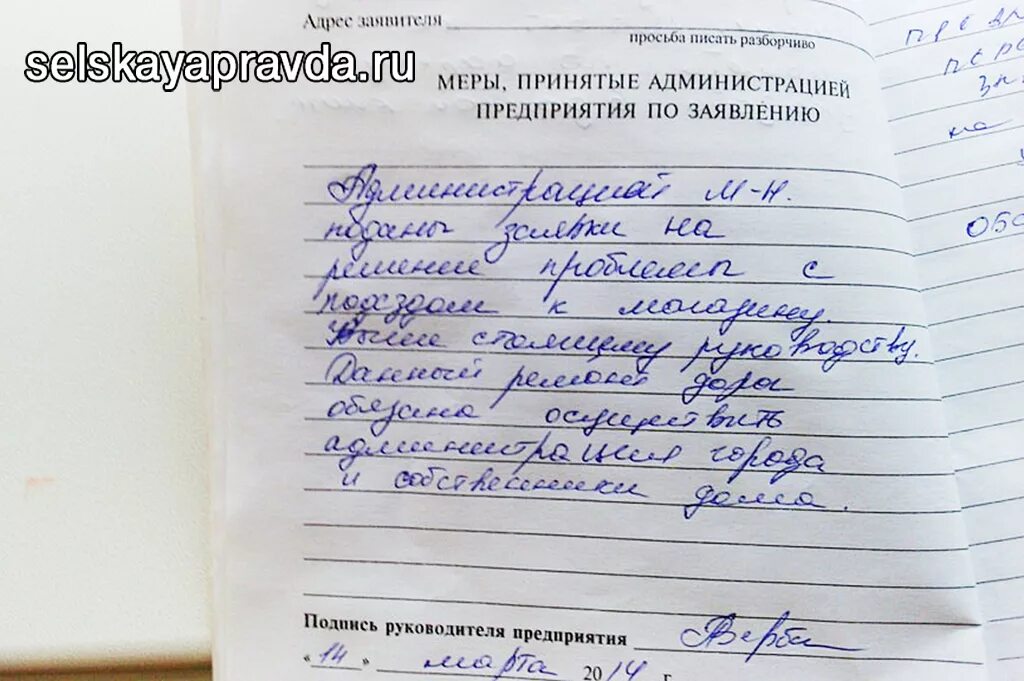 Адрес заявителя
просьба писать разборчиво
selskayapravda.ru
МЕРЫ, ПРИНЯТЫЕ АДМИНИСТРАЦИЕЙ
ПРЕДПРИЯТИЯ ПО ЗАЯВЛЕНИЮ
Администрацией М-Н.
поданы заявки на
решение проблемы с
подъздом к магазину.
Выше стоящему руководству.
Данный ремонт дорог
обязана осуществить
администрация города
и собственники дома.
Подпись руководителя предприятия Верби
«14» марта 2014 г.
на